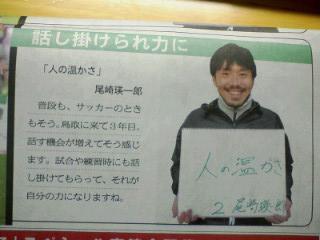 話し掛けられ力に
「人の温かさ」
尾崎瑛一郎
普段も、サッカーのとき
もそう。鳥取に来て3年目。
話す機会が増えてそう感
じます。試合や練習時にも話
し掛けてもらって、それが
自分の力になりますね。
人の温かさ
2 尾崎瑛一郎